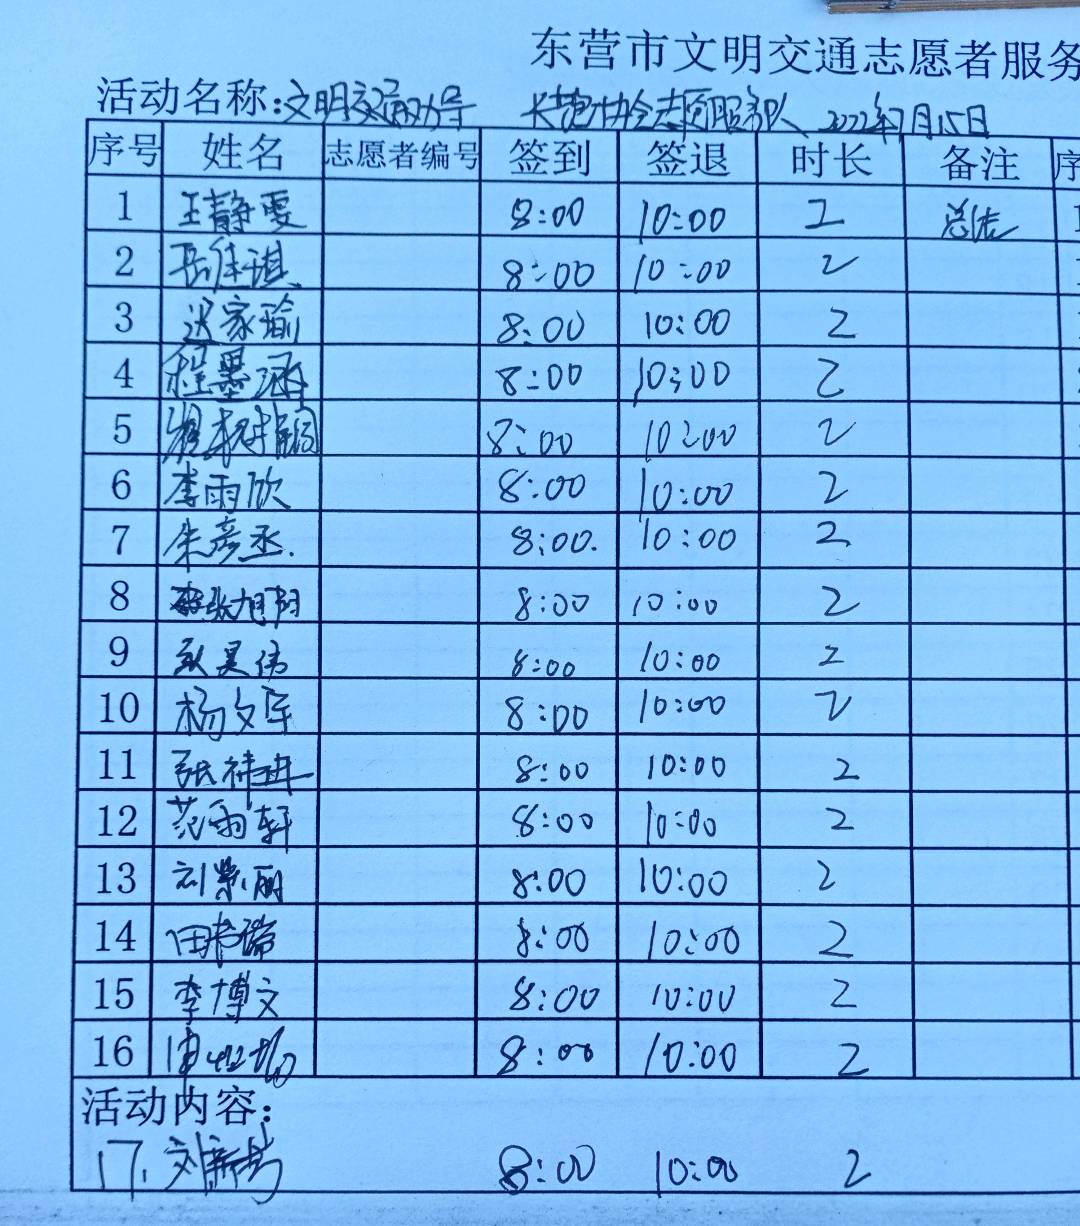 东营市文明交通志愿者服务
活动名称:文明交通劝导 长捷协会志愿服务队 2022年7月15日
序号 姓名 志愿者编号 签到 签退 时长 备注 序
1 王静雯 8:00 10:00 2
2 岳佳琪 8:00 10:00 2
3 迟家瑜 8:00 10:00 2
4 程墨涵 8:00 10:00 2
5 8:00 10:00 2
6 李雨欣 8:00 10:00 2
7 朱彦丞. 8:00. 10:00 2
8 张旭阳 8:00 10:00 2
9 昊伟 8:00 10:00 2
10 杨文军 8:00 10:00 2
11 张祎琳 8:00 10:00 2
12 范雨轩 8:00 10:00 2
13 刘紫丽 8:00 10:00 2
14 田书瑞 8:00 10:00 2
15 李博文 8:00 10:00 2
16 8:00 10:00 2
活动内容:
17. 刘新书 8:00 10:00 2